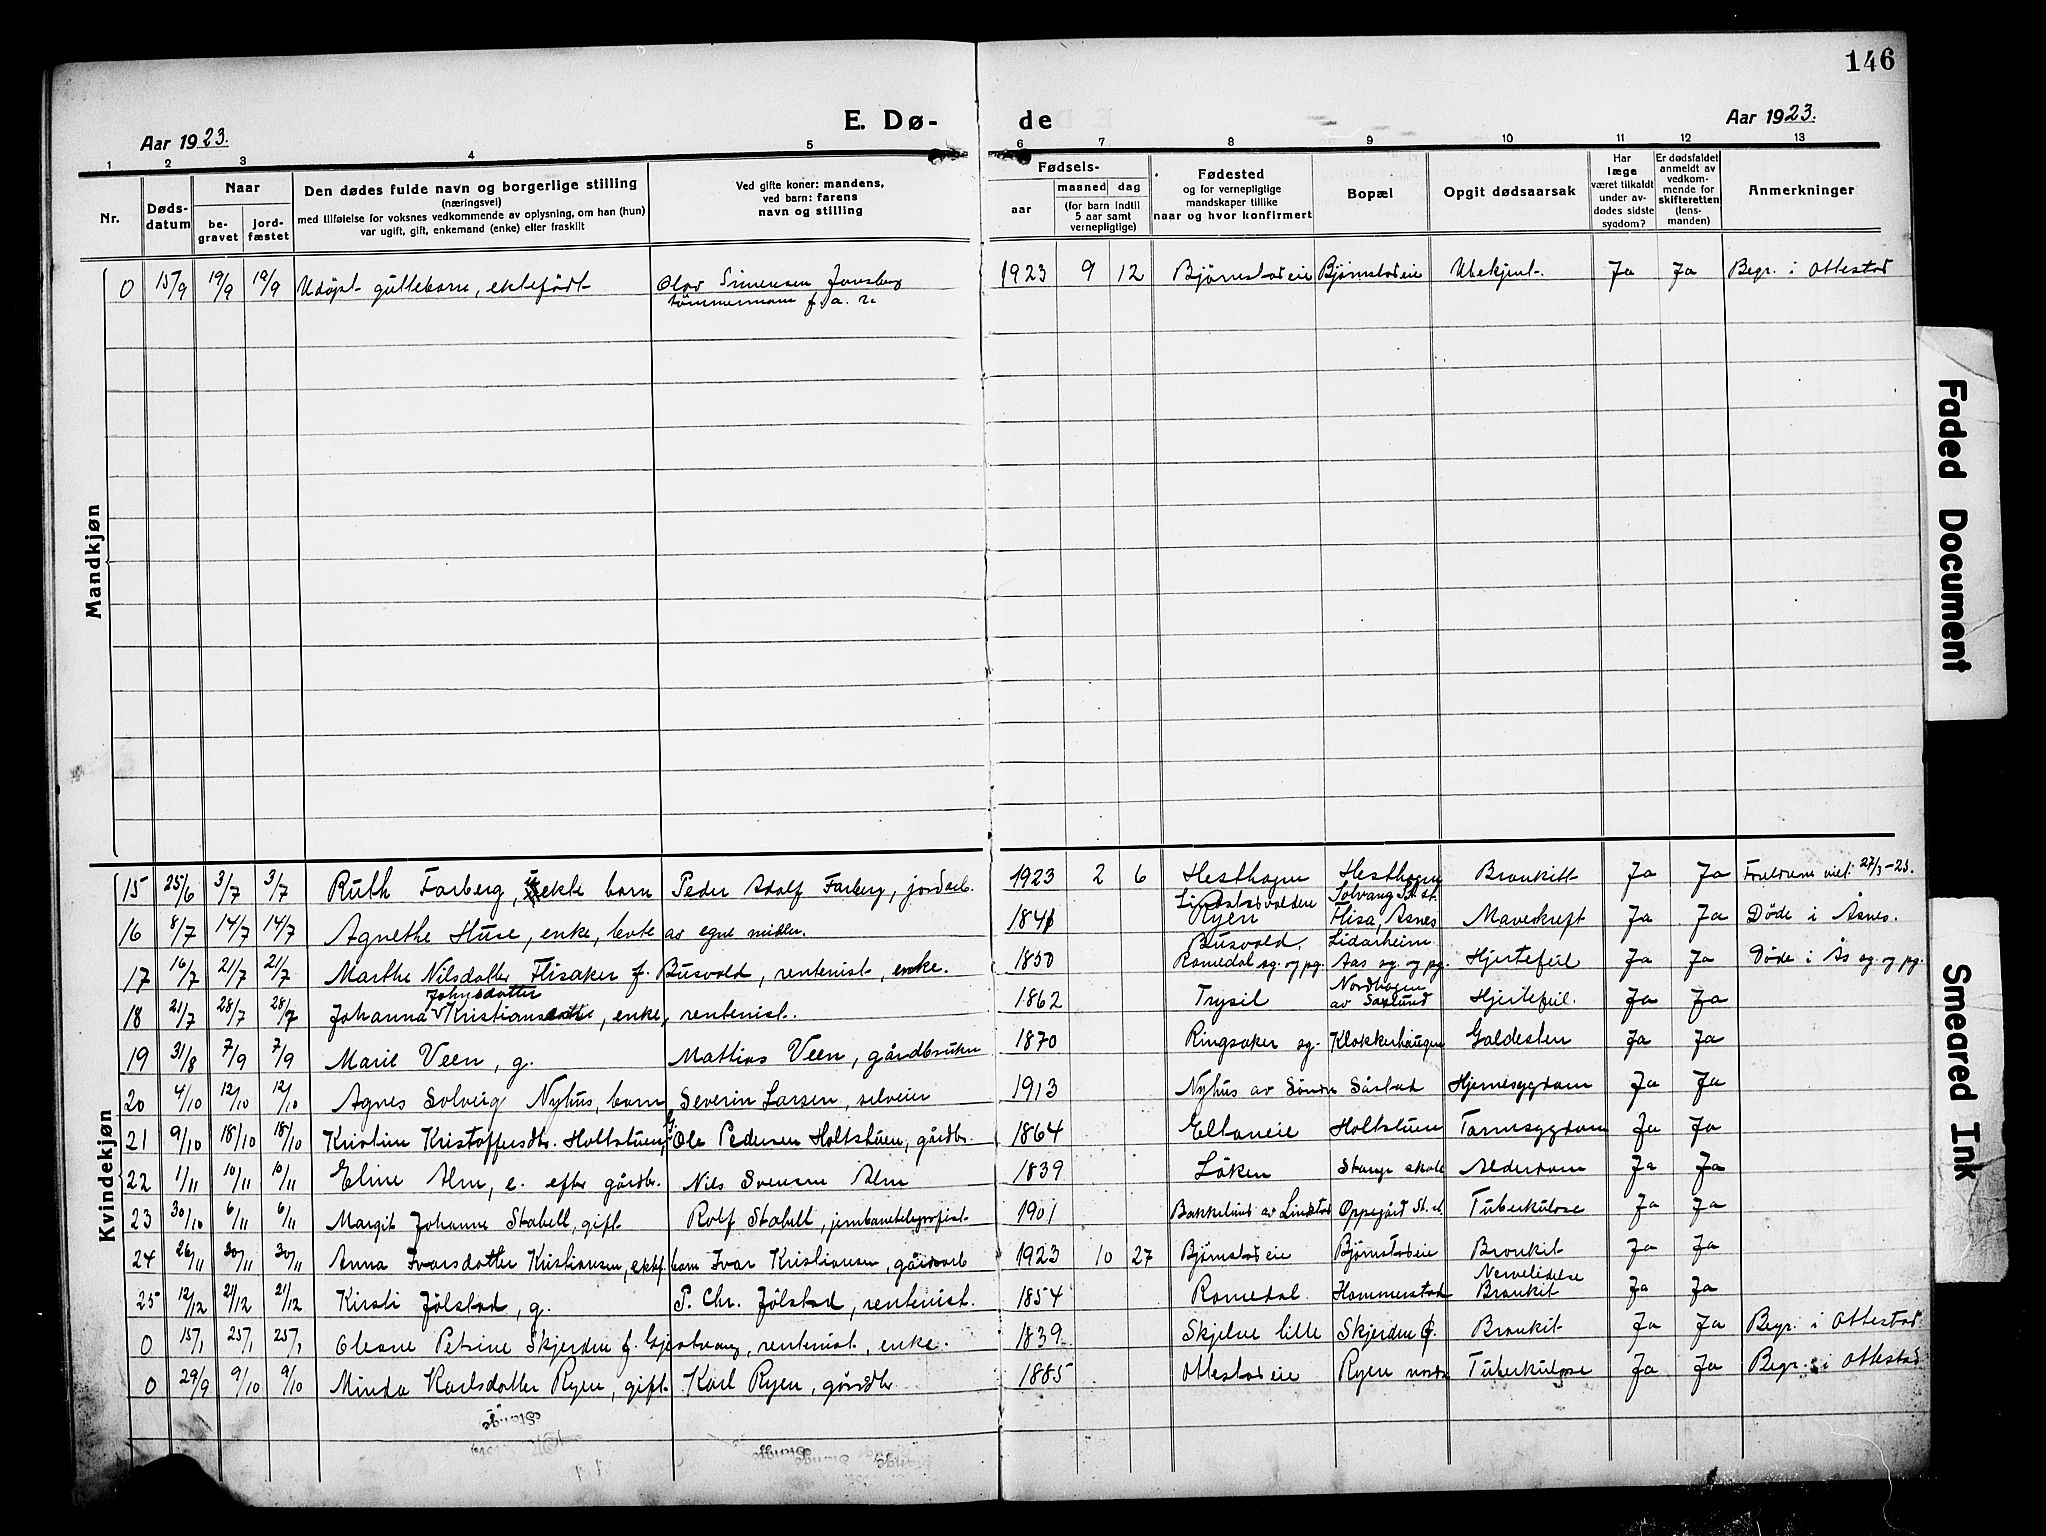 146
E. Dø- de
Aar 1923.
Aar 1923.
1 2 3 4 5 6 7 8 9 10 11 12 13
Nr.
Døds-
datum
Naar
be-
gravet
jord-
fæstet
Den dødes fulde navn og borgerlige stilling
(næringsvei)
med tilføielse for voksnes vedkommende av oplysning, om han (hun)
var ugift, gift, enkemand (enke) eller fraskilt
Ved gifte koner: mandens,
ved barn: farens
navn og stilling
Fødsels-
aar
maaned dag
(for barn indtil
5 aar samt
vernepligtige)
Fødested
og for vernepligtige
mandskaper tillike
naar og hvor konfirmert
Bopæl
Opgit dødsaarsak
Har
læge
været tilkaldt
under av-
dødes sidste
sygdom?
Er dødsfaldet
anmeldt av
vedkom-
mende for
skifteretten
(lens-
manden)
Anmerkninger
Mandkjøn
0 15/9 19/9 19/9 Udøpt guttebarn, ektefødt Olav Simensen Jonsberg 1923 9 12 Bjørnstadeie Bjørnstadeie Ubekjent. Ja Ja Begr. i Ottestad
tømmermann f. a.
Kvindekjøn
15 25/6 3/7 3/7 Ruth Farberg, uekte barn Peder Adolf Farberg, jordarb. 1923 2 6 Hesthagen Hesthagen Bronkitt Ja Ja Foreldrene viet 27/3-23.
Solvang St. st.
16 8/7 14/7 14/7 Agnethe Huse, enke, levte av egne midler. 1841 Ryen Flisa, Åsnes Mavekreft Ja Ja Døde i Åsnes.
Busvold. Lidarheim
17 16/7 21/7 21/7 Marthe Nilsdatter Flisaker f. Busvold, rentenist, enke. 1850 Romedal sg. og pg. Aas sg. og pg. Hjertefeil Ja Ja Døde i Ås sg. og pg.
Johnsdatter Nordhagen
18 21/7 28/7 28/7 Johanna Kristiansen, enke, rentenist. 1862 Trysil av Saxlund Hjertefeil. Ja Ja
19 31/8 7/9 7/9 Marie Veen, g. Mattias Veen, gårdbruker 1870 Ringsaker sg. Klokkerhaugen Galdesten Ja Ja
20 4/10 12/10 12/10 Agnes Solveig Nyhus, barn Severin Larsen, selveier 1913 Nyhus av Søndre Sørstad Hjernesygdom Ja Ja
21 9/10 18/10 18/10 Kristine Kristoffersdtr. Holtstuen, g. Ole Pedersen Holtstuen, gårdbr. 1864 Eltoneie Holtstuen Tarmsygdom Ja Ja
22 1/11 10/11 10/11 Eline Alm, e. efter gårdbr. Nils Svensen Alm 1839 Løken Stange skole Alderdom Ja Ja
23 30/10 6/11 6/11 Margit Johanne Stabell, gift Rolf Stabell, jernbanetelegrafist 1901 Bakkelund av Lindstad Oppegård St. st. Tuberkulose Ja Ja
24 26/11 30/11 30/11 Anna Ivarsdatter Kristiansen, ektef. barn Ivar Kristiansen, gårdarb 1923 10 27 Bjørnstadeie Bjørnstadeie Bronkit Ja Ja
Nervelidelse
25 12/12 21/12 21/12 Kirsti Jølstad, g. P. Chr. Jølstad, rentenist. 1854 Romedal. Hommerstad Bronkit Ja Ja
0 15/1 25/1 25/1 Oleane Petrine Skjerden f. Gjestvang, rentenist, enke. 1839 Skjelve lille Skjerden Ø. Bronkit Ja Ja Begr. i Ottestad.
0 29/9 9/10 9/10 Minda Karlsdatter Ryen, gift. Karl Ryen, gårdbr. 1885 Ottestadeie Ryen nordre Tuberkulose Ja Ja Begr. i Ottestad
Faded Document
Smeared Ink